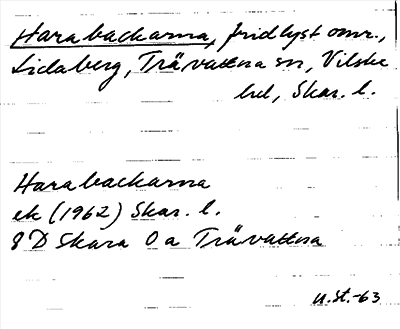 Harabackarna, fridlyst omr.,
Lidaberg, Trävattna sn, Vilske
hd, Skar. l.
Harabackarna
ek (1962) Skar. l.
8 D Skara 0 a Trävattna
u.st.-63